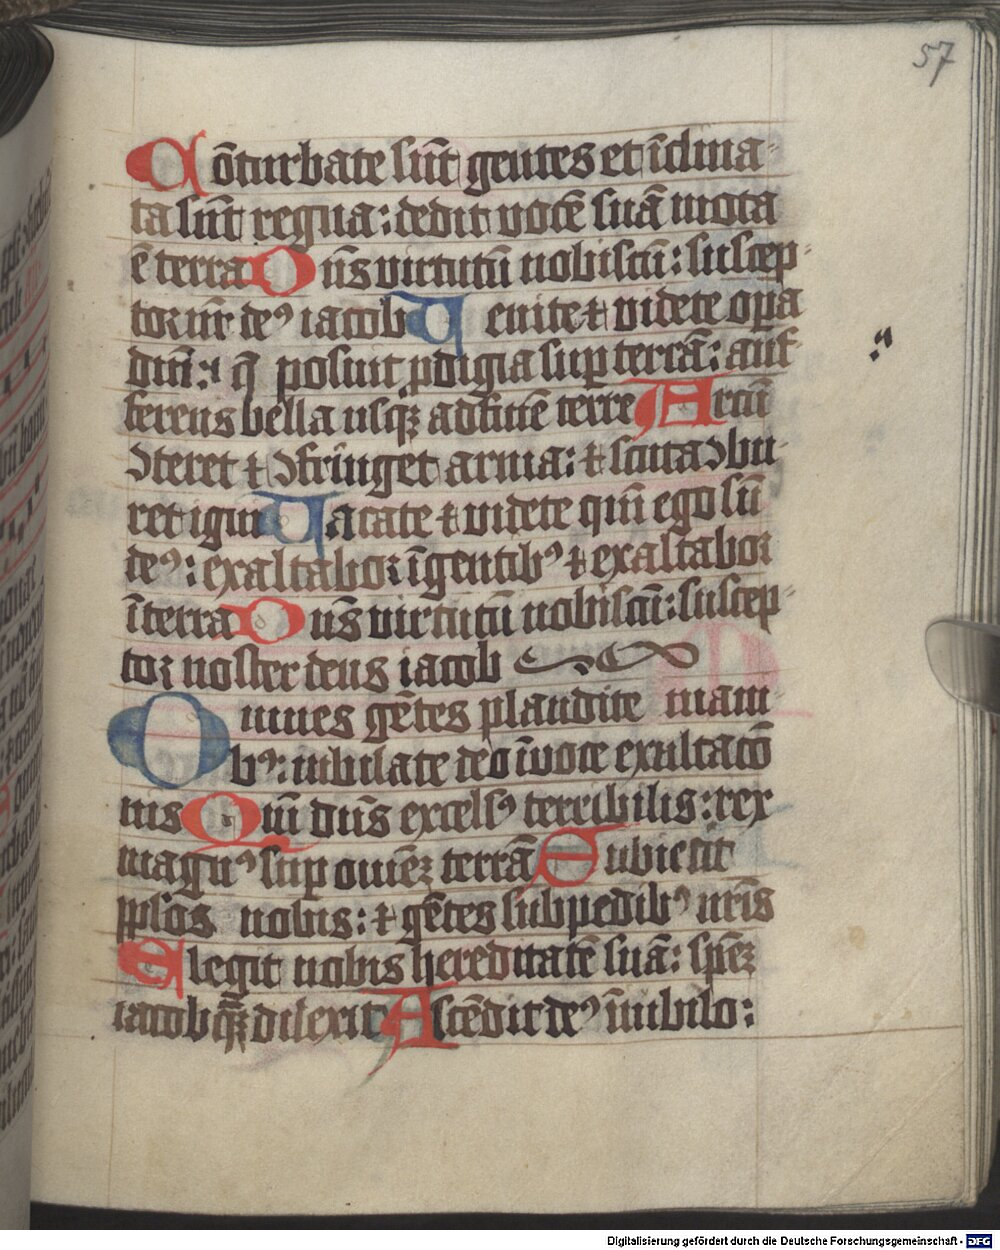 57
Cōturbate sūt gentes et īclina-
ta sūt regna: dedit vocē suā mota
ē terra Dn̄s virtutū nobiscū: suscep-
tor nr̄ deꝰ iacob Venite ⁊ videte op̄a
dn̄i: q̄ posuit ꝓdigia suꝑ terrā: auf-
ferens bella usqꝫ ad finē terre Arcū
ꝯteret ⁊ ꝯfringet arma: ⁊ scuta ꝯbu-
ret igni Vacate ⁊ videte qm̄ ego sū
deꝰ: exaltabor ī gentibꝰ ⁊ exaltabor
ī terra Dn̄s virtutū nobiscū: suscep-
tor noster deus iacob
Omnes gētes plaudite mani-
bꝰ: iubilate deo ī voce exultacō-
nis Qm̄ dn̄s excelsꝰ terribilis: rex
magnꝰ suꝑ omnēꝫ terrā Subiecit
pplōs nobis: ⁊ gētes sub pedibꝰ nr̄is
Elegit nobis hereditatē suā: spēꝫ
iacob quā dilexit Ascēdit deꝰ ī iubilo:
Digitalisierung gefördert durch die Deutsche Forschungsgemeinschaft - DFG